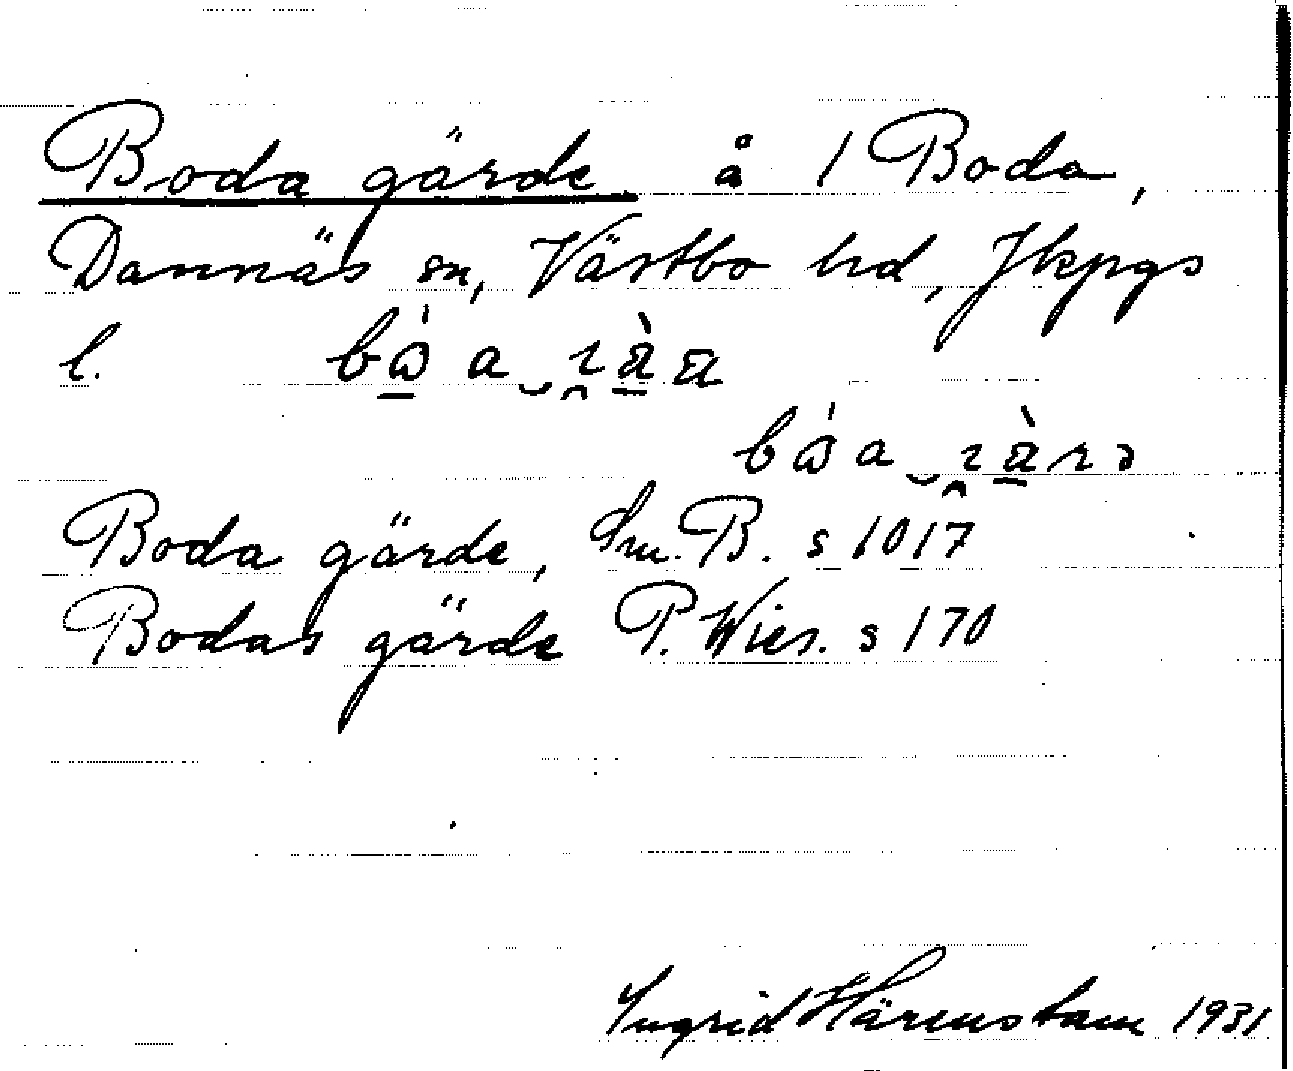 Boda gärde å 1 Boda,
Dannäs sn, Västbo hd, Jkpgs
l.
Boda gärde, Sm. B. s 1017
Bodas gärde P. Wies. s 170
Ingrid Härenstam 1931